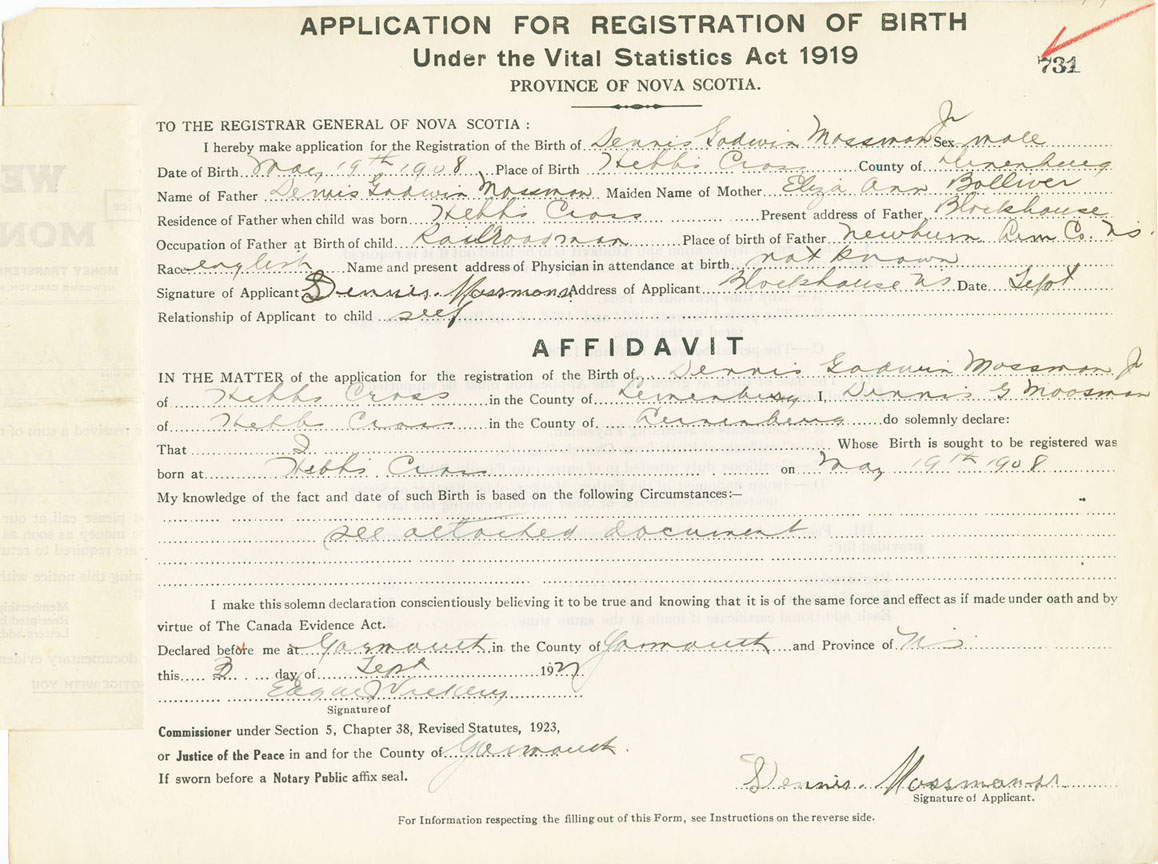 APPLICATION FOR REGISTRATION OF BIRTH
Under the Vital Statistics Act 1919
731
PROVINCE OF NOVA SCOTIA.
TO THE REGISTRAR GENERAL OF NOVA SCOTIA :
I hereby make application for the Registration of the Birth of Dennis Godwin Mossman Jr Sex male
Date of Birth May 19th 1908 Place of Birth Hebbs Cross County of Lunenburg
Name of Father Dennis Godwin Mossman Maiden Name of Mother Eliza Ann Bolliver
Residence of Father when child was born Hebbs Cross Present address of Father Blockhouse
Occupation of Father at Birth of child Railroadman Place of birth of Father Newburn Lun Co. Ns.
Race english Name and present address of Physician in attendance at birth not known
Signature of Applicant Dennis Mossman Address of Applicant Blockhouse NS Date Sept
Relationship of Applicant to child self
AFFIDAVIT
IN THE MATTER of the application for the registration of the Birth of Dennis Godwin Mossman Jr
of Hebbs Cross in the County of Lunenburg I, Dennis G Moosman
of Hebbs Cross in the County of Lunenburg do solemnly declare:
That I Whose Birth is sought to be registered was
born at Hebbs Cross on May 19th 1908
My knowledge of the fact and date of such Birth is based on the following Circumstances:—
see attached document
I make this solemn declaration conscientiously believing it to be true and knowing that it is of the same force and effect as if made under oath and by
virtue of The Canada Evidence Act.
Declared before me at Yarmouth in the County of Yarmouth and Province of NS
this 2 day of Sept 1927
Edgar Vickery
Signature of
Commissioner under Section 5, Chapter 38, Revised Statutes, 1923,
or Justice of the Peace in and for the County of Yarmouth.
If sworn before a Notary Public affix seal.
Dennis Mossman Jr
Signature of Applicant.
For Information respecting the filling out of this Form, see Instructions on the reverse side.